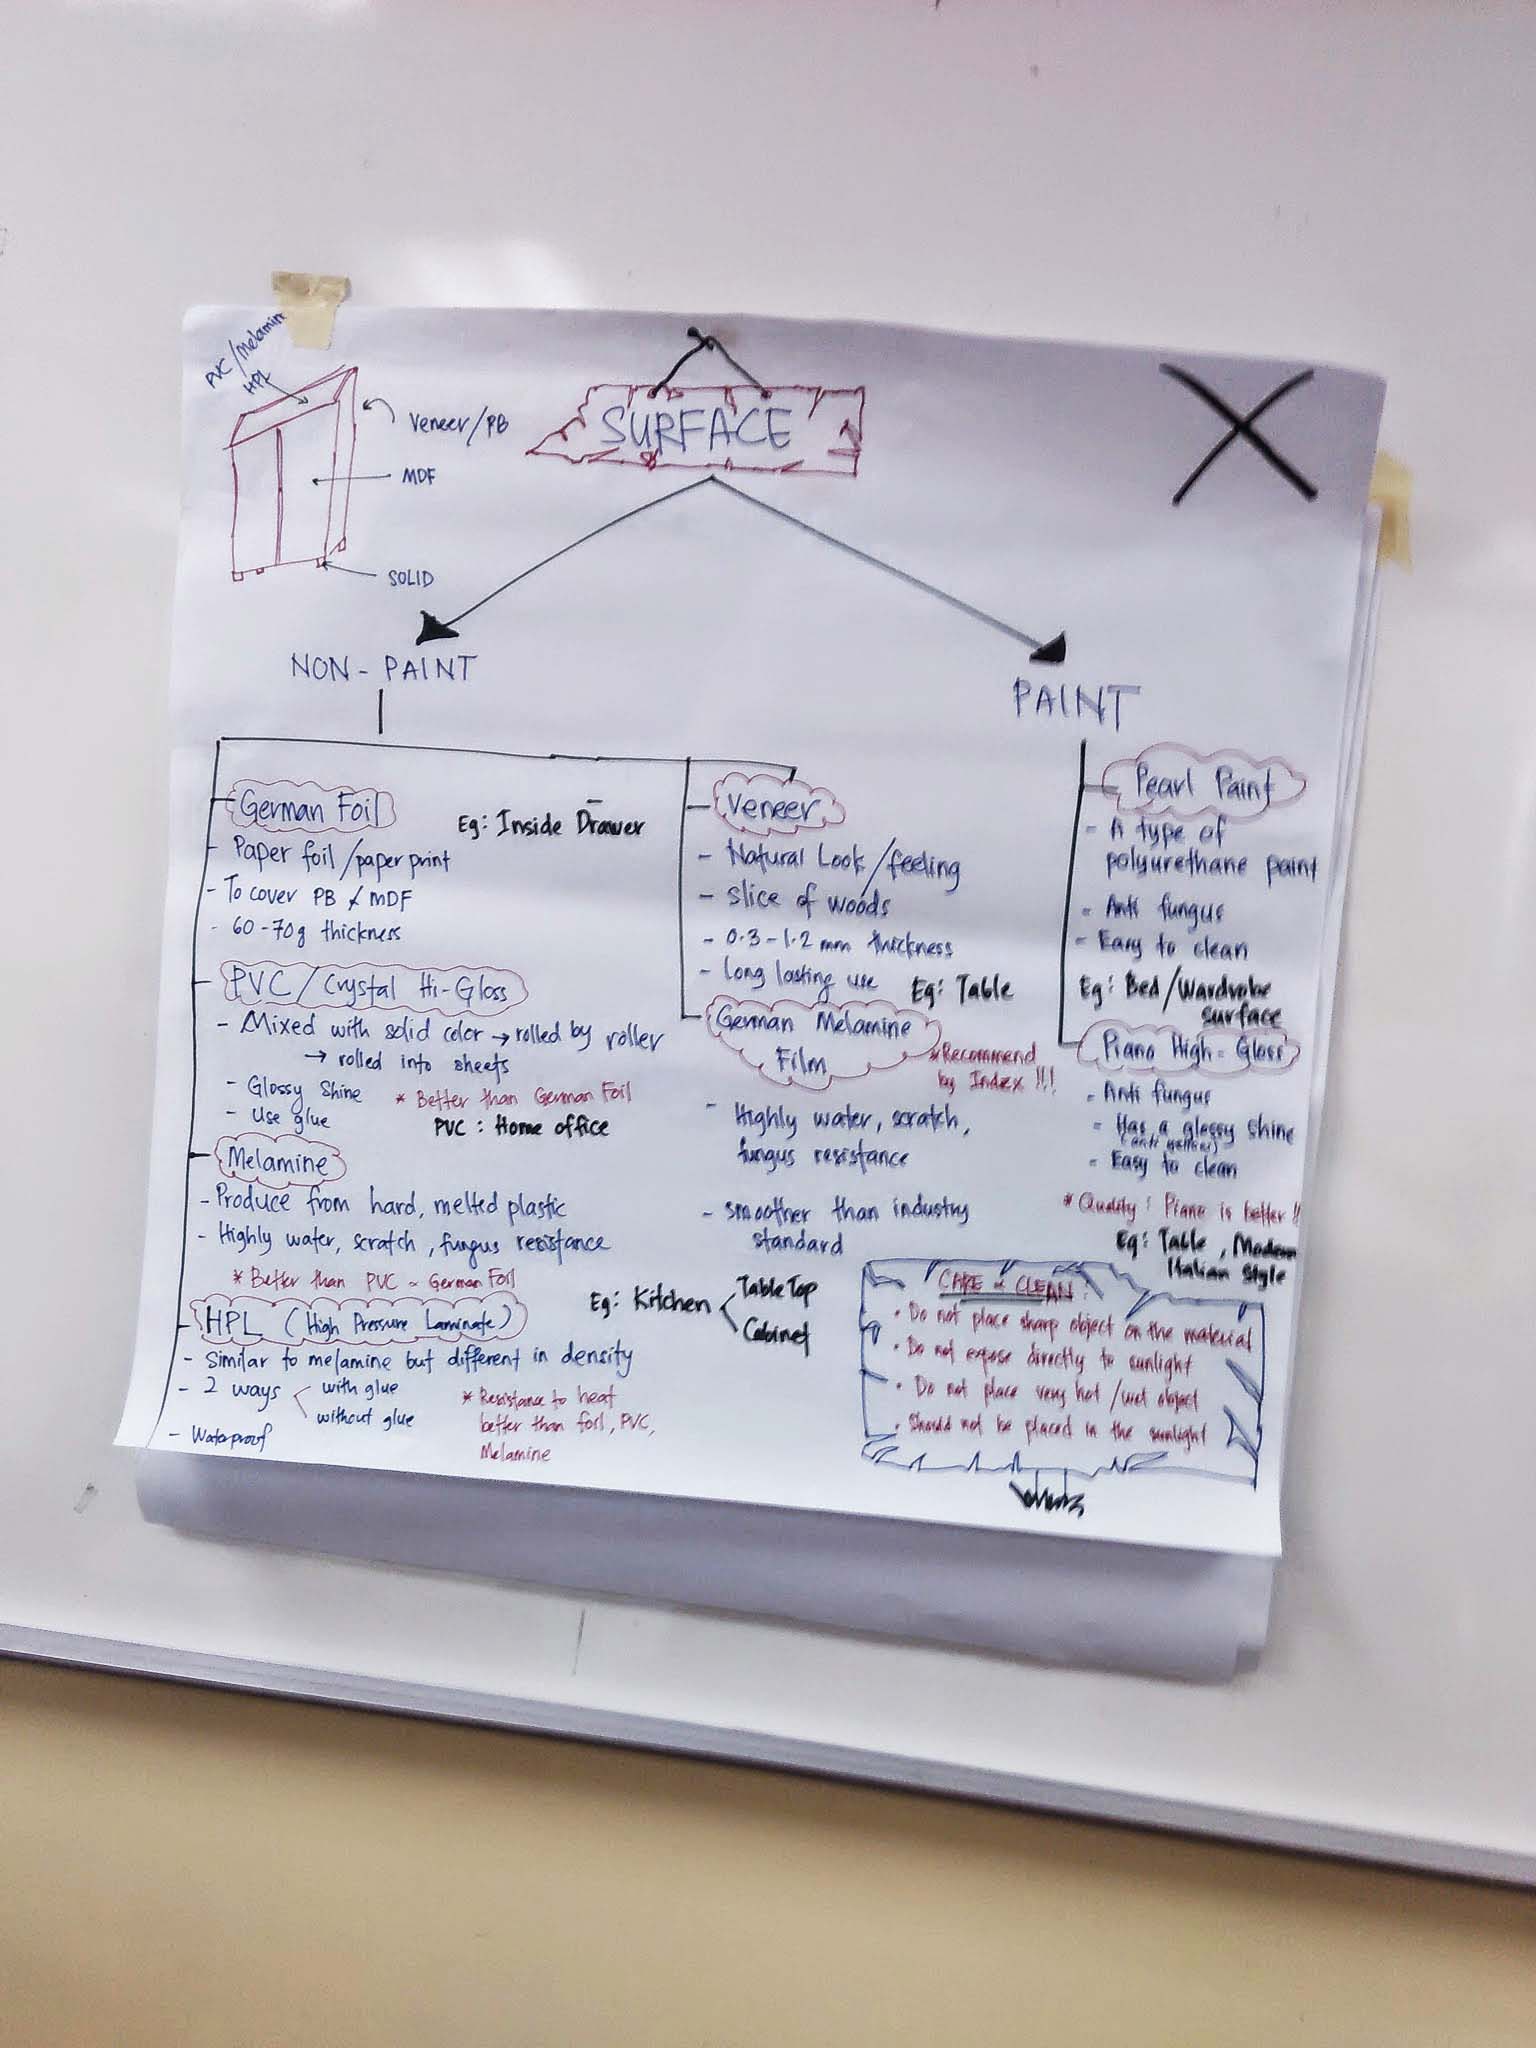 PVC/Melamine
HPL
Veneer/PB
MDF
SOLID
SURFACE
NON-PAINT
PAINT
German Foil
Eg: Inside Drawer
- Paper foil/paper print
- To cover PB & MDF
- 60-70g thickness
PVC/Crystal Hi-Gloss
- Mixed with solid color → rolled by roller
→ rolled into sheets
- Glossy Shine
* Better than German Foil
- Use glue
PVC : Home office
Melamine
- Produce from hard, melted plastic
- Highly water, scratch, fungus resistance
* Better than PVC & German Foil
Eg: Kitchen
Table Top
Cabinet
HPL (High Pressure Laminate)
- Similar to melamine but different in density
- 2 ways
with glue
without glue
* Resistance to heat
better than foil, PVC,
Melamine
- Waterproof
Veneer
- Natural Look/feeling
- Slice of woods
- 0.3-1.2 mm thickness
- Long lasting use
Eg: Table
German Melamine
Film
* Recommend
by Index !!!
- Highly water, scratch,
fungus resistance
- smoother than industry
standard
Pearl Paint
- A type of
polyurethane paint
- Anti fungus
- Easy to clean
Eg: Bed/Wardrobe
surface
Piano High-Gloss
- Anti fungus
- Has a glossy shine
- Easy to clean
* Quality: Piano is better !!
Eg: Table, Modern
Italian Style
CARE & CLEAN!
• Do not place sharp object on the material
• Do not expose directly to sunlight
• Do not place very hot/wet object
• Should not be placed in the sunlight